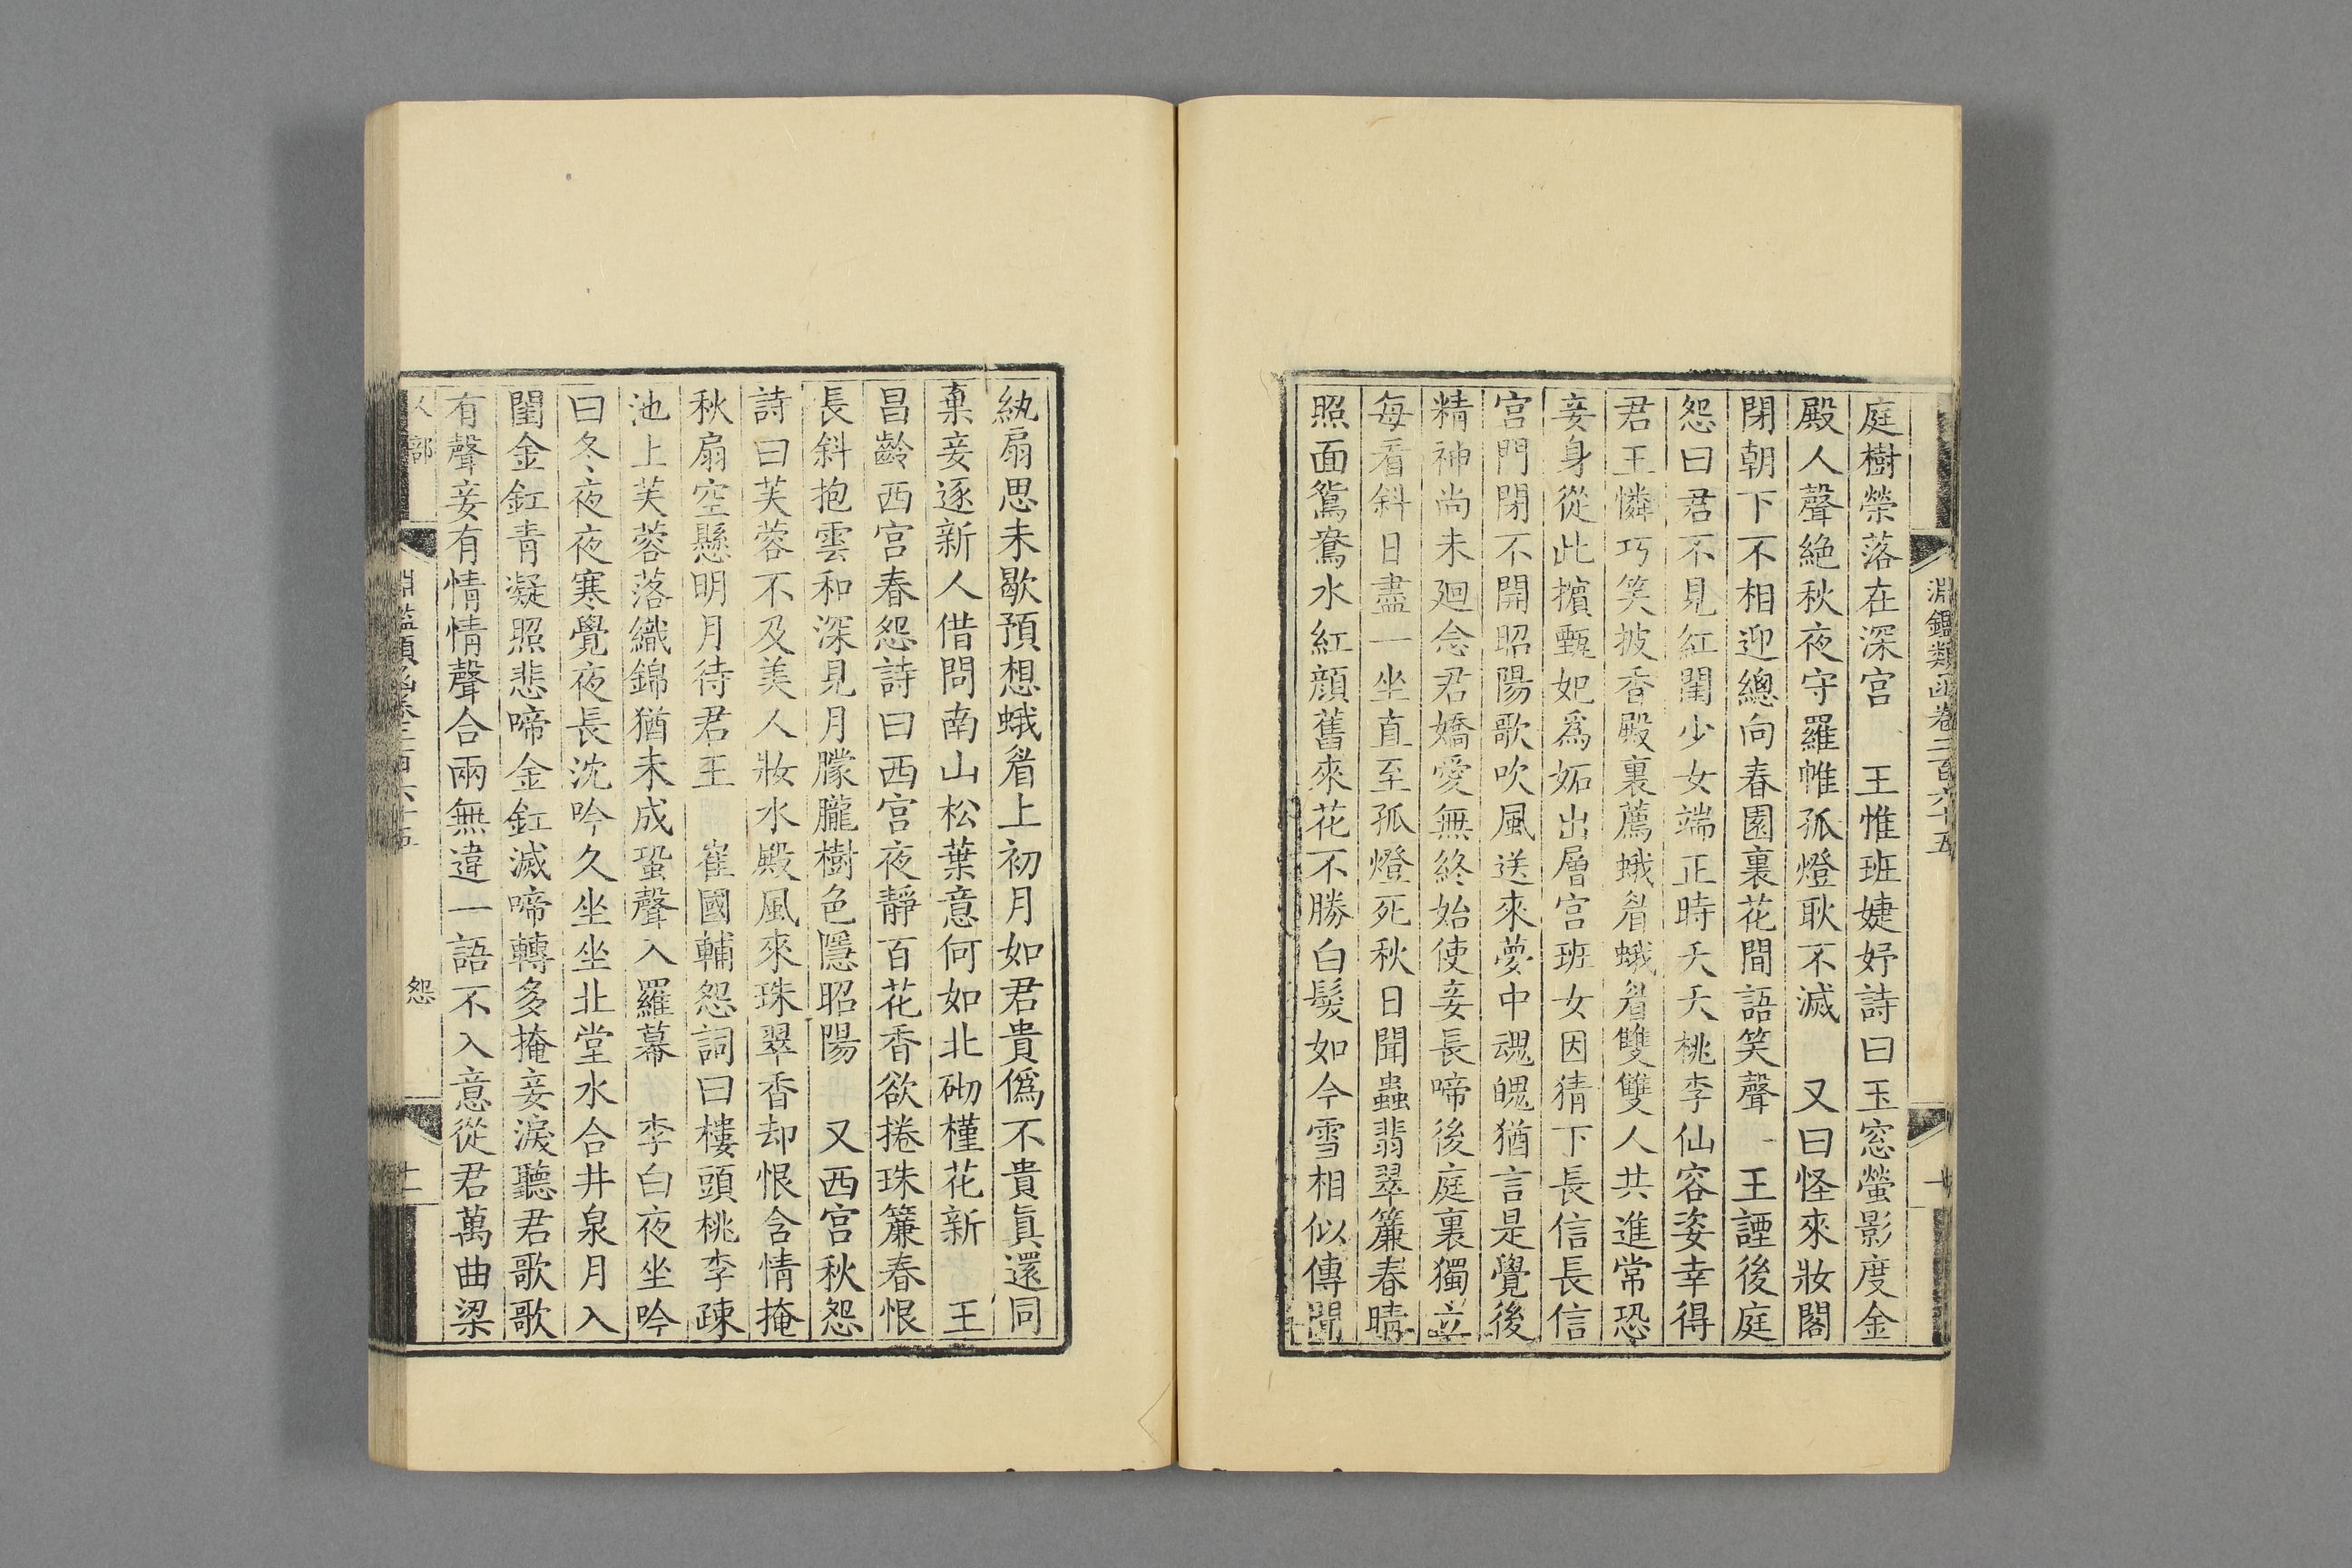 淵鑑類函卷二百六十五
庭樹榮落在深宮　王惟班婕妤詩曰玉窓螢影度金
殿人聲絶秋夜守羅帷孤燈耿不滅　又曰怪來妝閣
閉朝下不相迎總向春園裏花間語笑聲　王諲後庭
怨曰君不見紅閨少女端正時夭夭桃李仙容姿幸得
君王憐巧笑披香殿裏薦蛾眉蛾眉雙雙人共進常恐
妾身從此擯甄妃爲妬出層宮班女因猜下長信長信
宮門閉不開昭陽歌吹風送來夢中魂魄猶言是覺後
精神尚未廻念君嬌愛無終始使妾長啼後庭裏獨立
每看斜日盡一坐直至孤燈死秋日聞蟲翡翠簾春晴
照面鴛鴦水紅顔舊來花不勝白髮如今雪相似傳聞
紈扇思未歇預想蛾眉上初月如君貴僞不貴眞還同
棄妾逐新人借問南山松葉意何如北砌槿花新　王
昌齡西宮春怨詩曰西宮夜靜百花香欲捲珠簾春恨
長斜抱雲和深見月朦朧樹色隱昭陽　又西宮秋怨
詩曰芙蓉不及美人妝水殿風來珠翠香却恨含情掩
秋扇空懸明月待君王　崔國輔怨詞曰樓頭桃李疎
池上芙蓉落織錦猶未成蛩聲入羅幕　李白夜坐吟
曰冬夜夜寒覺夜長沈吟久坐坐北堂水合井泉月入
閨金釭青凝照悲啼金釭滅啼轉多掩妾淚聽君歌歌
有聲妾有情情聲合兩無違一語不入意從君萬曲梁
人部　淵鑑類函卷二百六十五　怨　十一